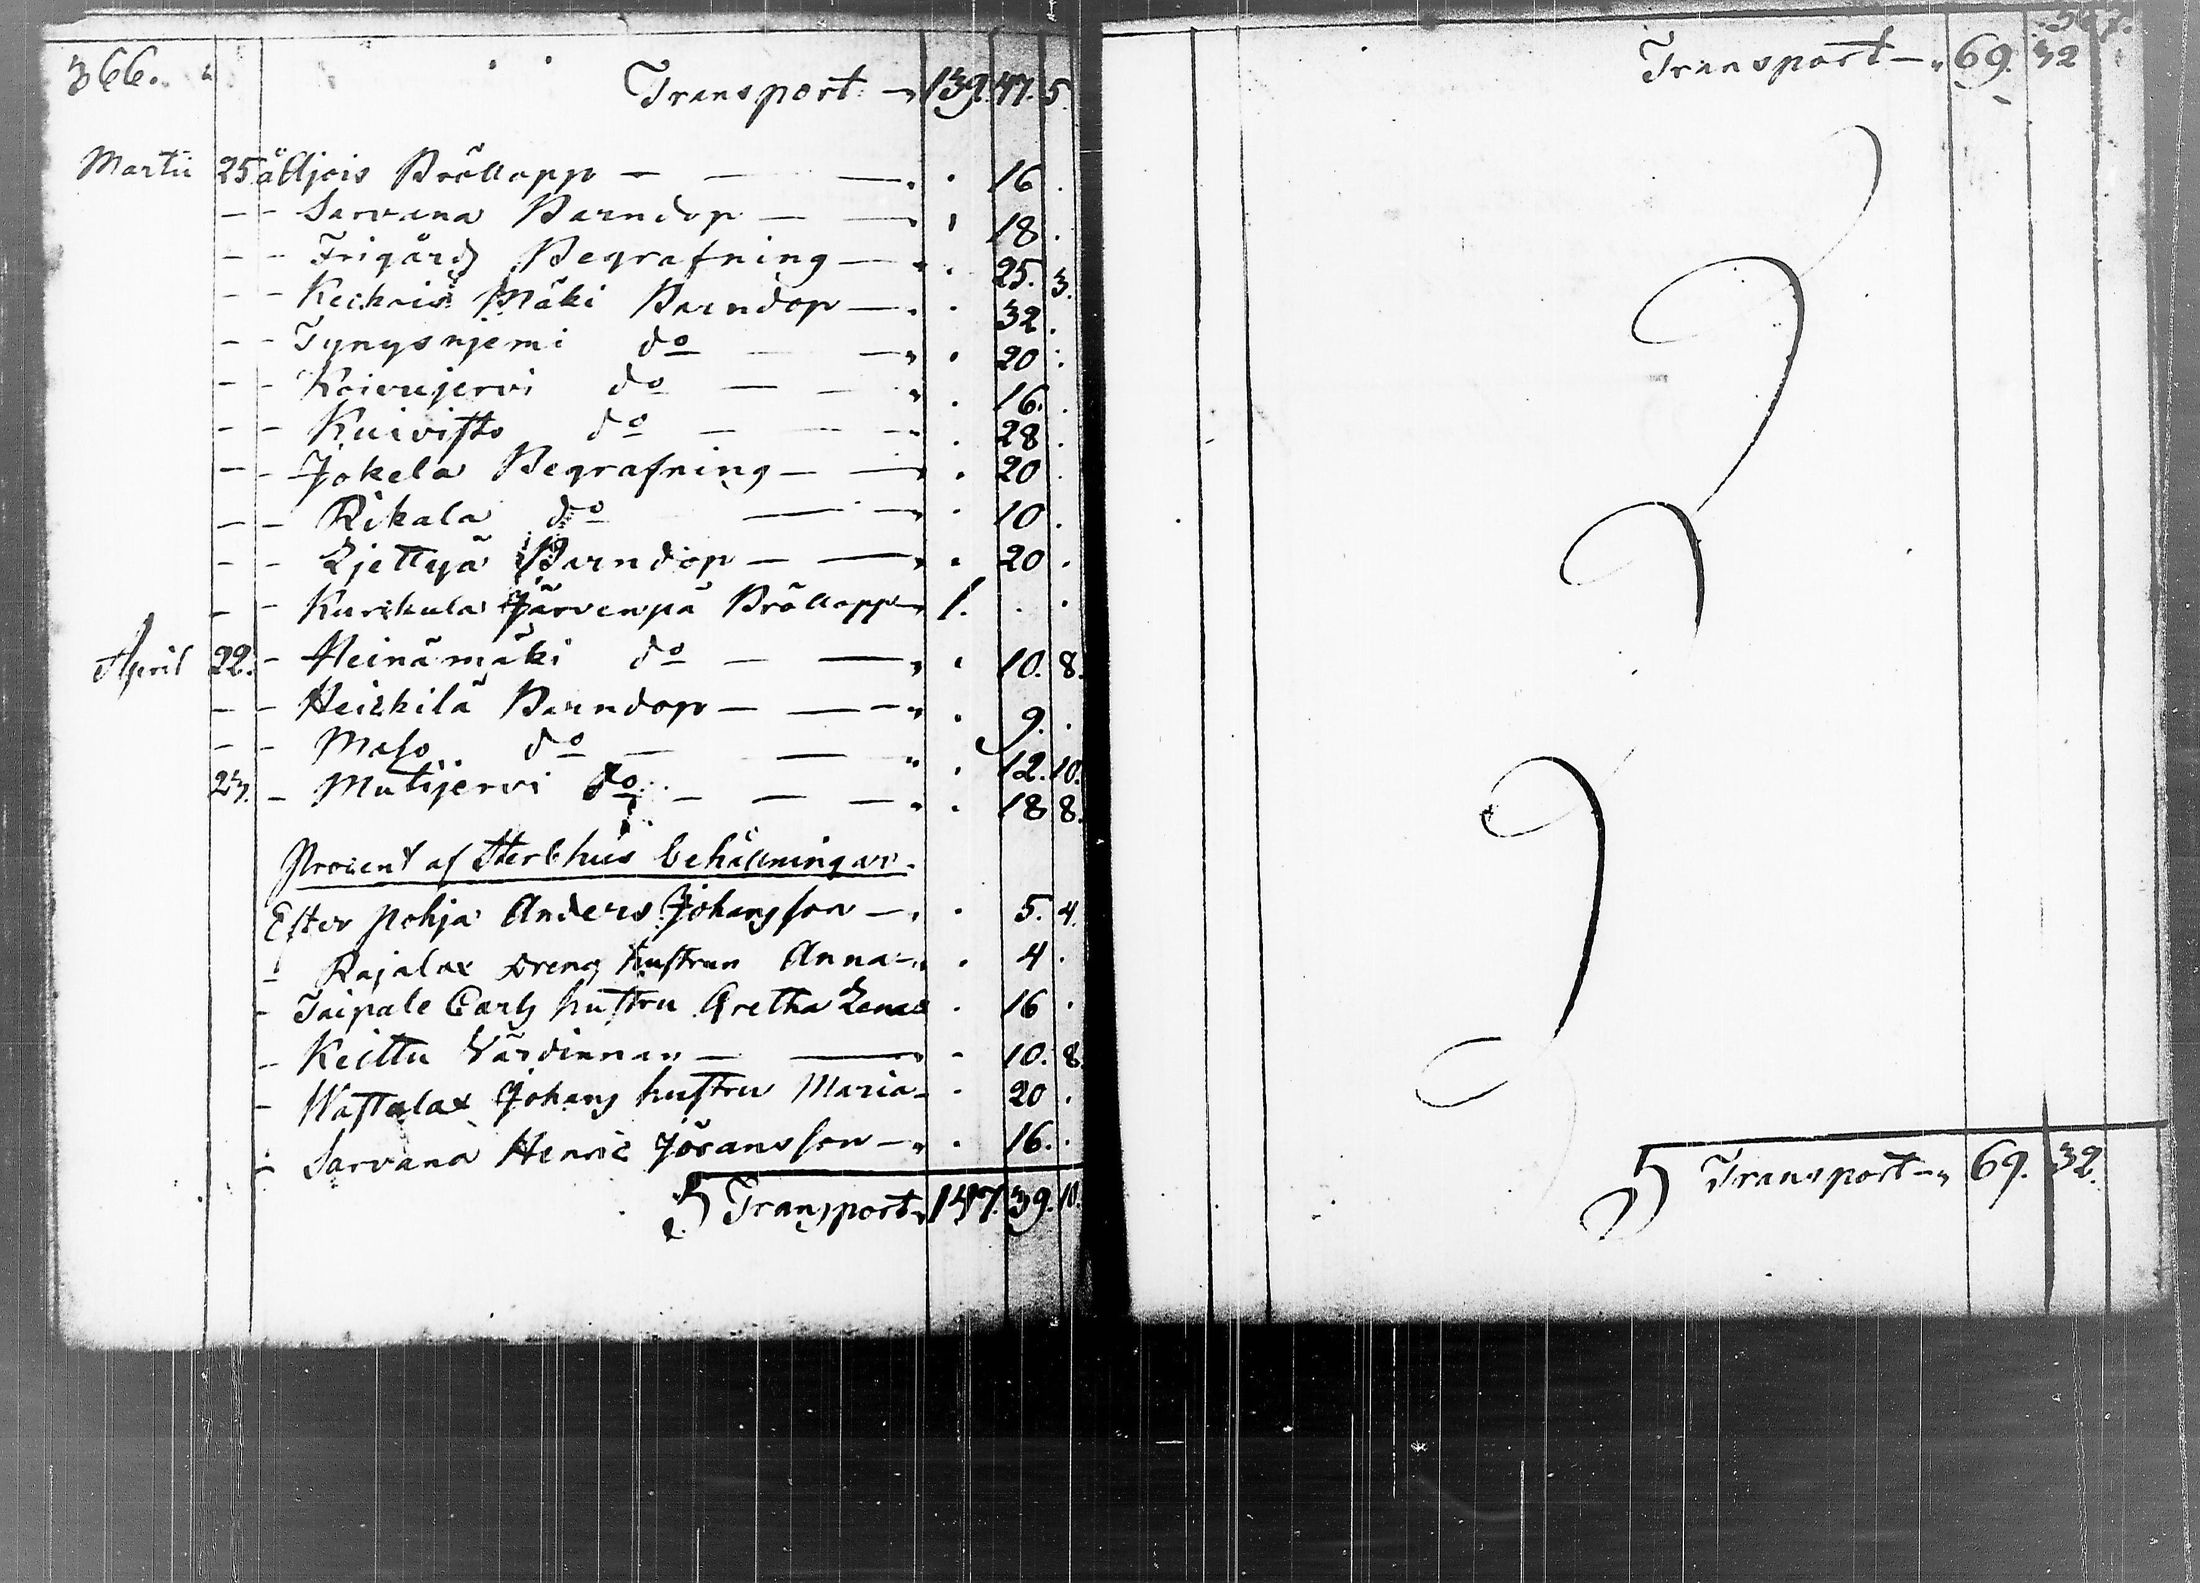 366.
Transport — 139. 47. 5.
Martii 25 å Uljois Bröllopp — — — . 16 .
— — Sarvana Barndop — — . 18 .
— — Frigårds Begrafning — . 25. 3.
— — Keckois Mäki Barndop — . 32 .
— — Tynysnjemi do — — . 20 .
— — Koivujervi do — — . 16. .
— — Kuivisto do — — — . 28 .
— — Jokela Begrafning — — . 20 .
— — Rikala do — — . 10 .
— — Ljettyä Barndop — — . 20 .
— — Kurikala Järvenpä Bröllopp — 1. . .
April 22. — Heinämäki do — — . 10. 8.
— — Heickilä Barndop — — — . 9. .
— — Maso do — — . 12. 10.
23. — Mutijervi do — — — . 18 8.
Procent af Sterbhus behållningar.
Efter Pohja Anders Johansson — . 5. 4.
— Rajalax Dreng hustrun Anna — . 4 .
— Taipale Carls hustru Gretha Lena . 16 .
— Keittu Värdinnan — — . 10. 8
— Wastalax Johans hustru Maria — . 20 .
— Sarvana Henric Jöransson — . 16. .
Transport 147. 39. 10.
367.
Transport — 69. 32
Transport — 69. 32.